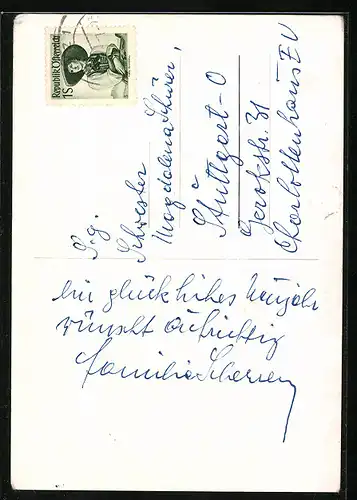 Republik Österreich
1S
S.g.
Schwester
Magdalena
Stuttgart-O
Gerokstr. 31
Charlottenhaus
Ein glückliches Neujahr
wünscht aufrichtig
Familie